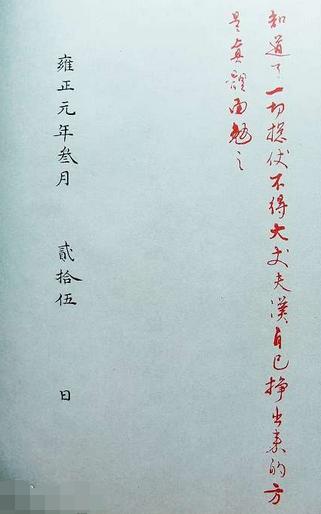 知道了一切捴仗不得大丈夫漢自己掙出来的方
是真體面勉之
雍正元年叁月 貳拾伍 日